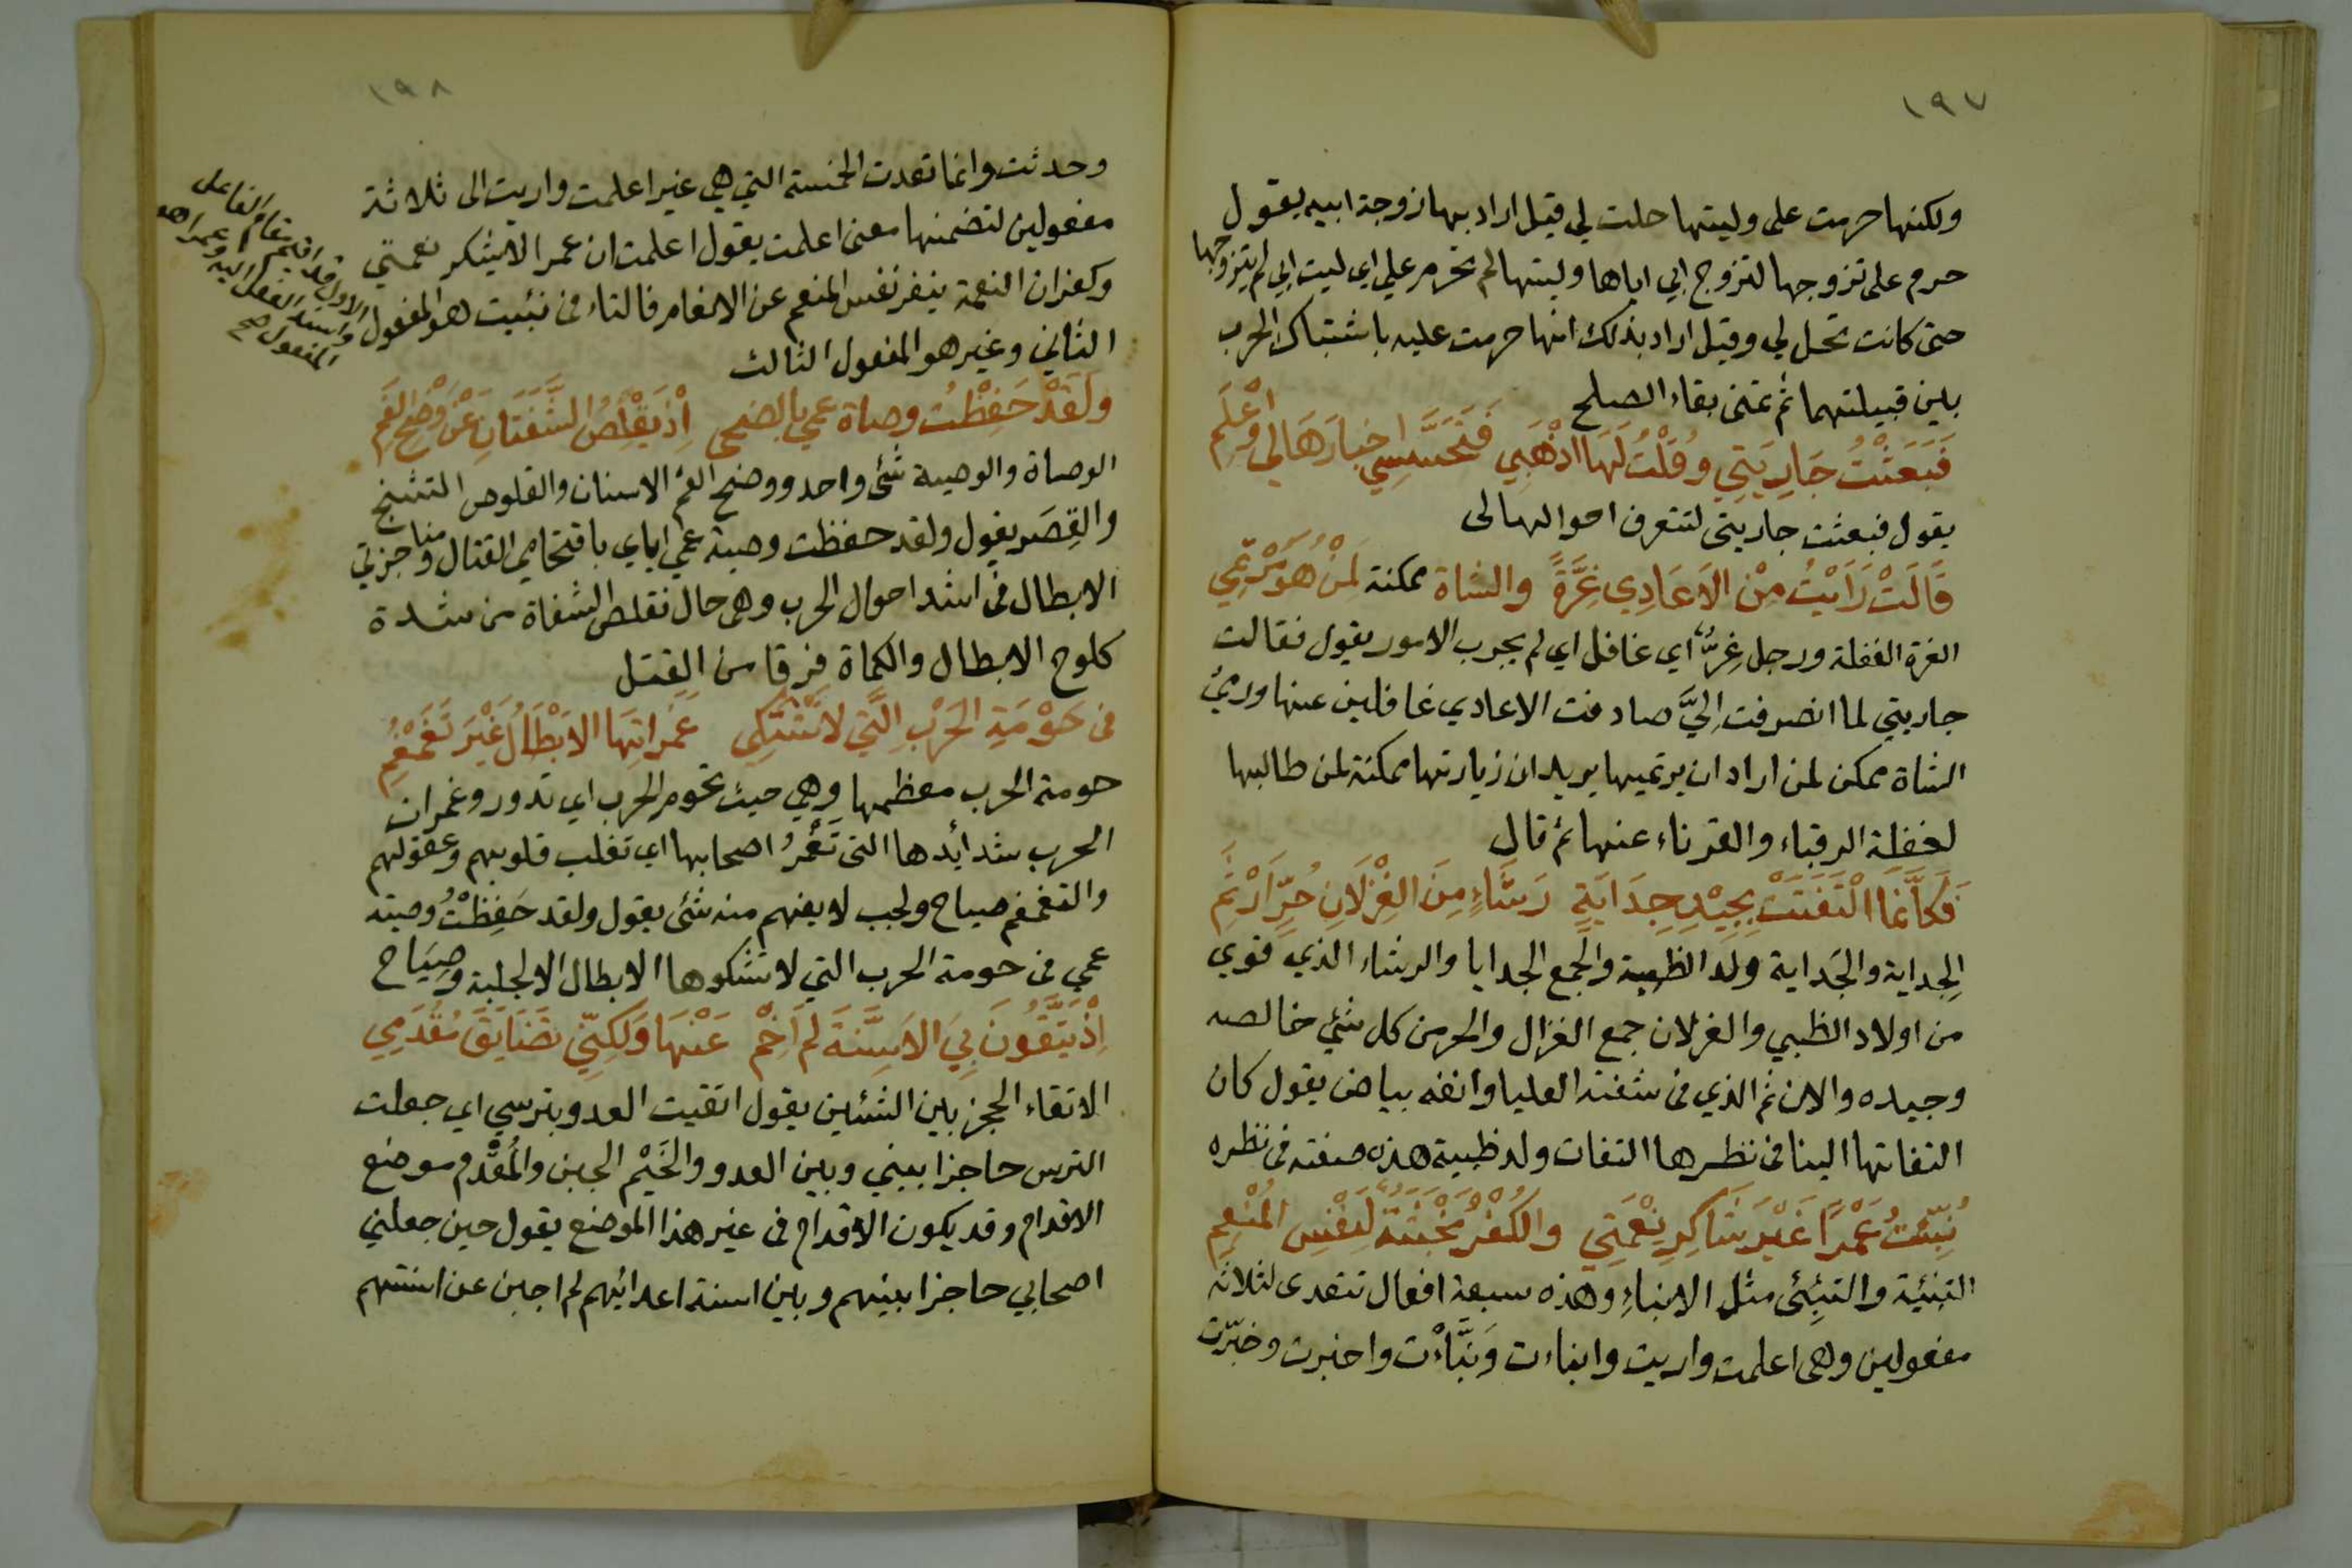 ١٩٧
ولكنها حرمت على وليتها حلت لي قيل اراد بها زوجة ابيه يقول
حرم على تزوجها لتزوج ابي اياها وليتها لم تحرم علي اي ليت ابي لم يتزوجها
حتى كانت تحل لي وقيل اراد بذلك انها حرمت عليه باشتباك الحرب
بين قبيلتهما ثم تمنى بقاء الصلح
فَبَعَثْتُ جَارِيَتِي وقُلْتُ لَهَا اذْهَبِي فَتَحَسَّسِي اخبارَهَا لي واعْلَمِ
يقول فبعثت جاريتى لتتعرف احوالها لى
قَالَتْ رَاَيْتُ مِنْ الاَعَادِي غِرَّةً والشاة ممكنة لمَنْ هُوَ مُرْتمِي
الغرة الغفلة ورجل غِرٌّ اي غافل اي لم يجرب الامور يقول فقالت
جاريتي لما انصرفت اِليَّ صادفت الاعادي غافلين عنها ورمىُ
الشاة ممكن لمن اراد ان يرتميها يريد ان زيارتها ممكنة لمن طالبها
لغفلة الرقباء والقرناء عنها ثم قال
فَكَاَنَّمَا الْتَفَتَتْ بِجِيْدِ جِدَايَةٍ رَشَاءٍ مِنَ الغِزْلَانِ حُرٍّ اَرْثَمِ
الجِداية والجَداية ولد الظبية والجمع الجدايا والرشاء الذي قوي
من اولاد الظبي والغزلان جمع الغزال والحر من كل شئي خالصه
وجيده والارثم الذي فى شفته العليا وانفه بياض يقول كان
التفاتها الينا فى نظرها التفات ولد ظبية هذه صفته فى نظره
نُبِّئتُ عَمْرًا غَيْرَ شَاكِرِ نِعْمَتِي والكُفْرُ مَخْبَثَةٌ لِنَفْسِ المُنْعِمِ
التنبئة والتنبِئى مثل الانباءِ وهذه سبعة افعال تتعدى لثلاثه
مفعولين وهى اعلمت واريت وانباءت وَنَبَّاْت واخبرت وخبّرت
١٩٨
وحدثت وانما تعدت الخمسة التي هي غير اعلمت واريت الى ثلاثة
مفعولين لتضمنها معنى اعلمت يقول اعلمت ان عمرا لا يشكر نعمتي
وكفران النعمة ينفر نفس المنعم عن الانعام فالتاء فى نبئيت هو المفعول
الاول قد اقيم مقام الفاعل
واسند الفعل اليه وعمرا هو
المفعول صح
الثاني وغير هو المفعول الثالث
ولَقَدْ حَفِظْتُ وصاة عمي بالضحى اِذْ يَقْلِصُ الشَّفَتَانِ عَنْ وَضْحِ الفَمِ
الوصاة والوصية شئى واحد ووضح الفم الاسنان والقلوص التشنج
والقِصَر يقول ولقد حفظت وصية عمي اياي باقتحامي القتال ومناجزتي
الابطال فى اشد احوال الحرب وهى حال تقلص الشفاة من شدة
كلوح الابطال والكماة فرقا من القتل
فى حَوْمَةِ الحَرْبِ الَّتي لا تَشْتَكِى غَمَراتِهَا الاَبْطَالُ غَيْرَ تَغَمْغُمِ
حومة الحرب معظمها وهي حيث تحوم الحرب اي تدور وغمرات
الحرب شدائدها التى تَغْمُرُ اصحابها اى تغلب قلوبهم وعقولهم
والتغمغم صياح ولجب لا يفهم منه شئى يقول ولقد حَفِظْتُ وصية
عمي فى حومة الحرب التي لا تشكوها الابطال الا لجلبة وصِيَاح
اِذْ يَتَّقُونَ بِيَ الاَسِنَّةَ لم اَخِمْ عَنْهَا وَلَكِنّي تضَايَقَ مُقْدَمي
الاتقاء الحجز بين الشئين يقول اتقيت العدو بترسي اي جعلت
الترس حاجزا بيني وبين العدو والخَيْم الجبن والمُقْدم موضع
الاقدام وقد يكون الاقدام فى غير هذا الموضع يقول حين جعلني
اصحابي حاجزا بينهم وبين اسنة اعدائهم لم اجبن عن اسنتهم